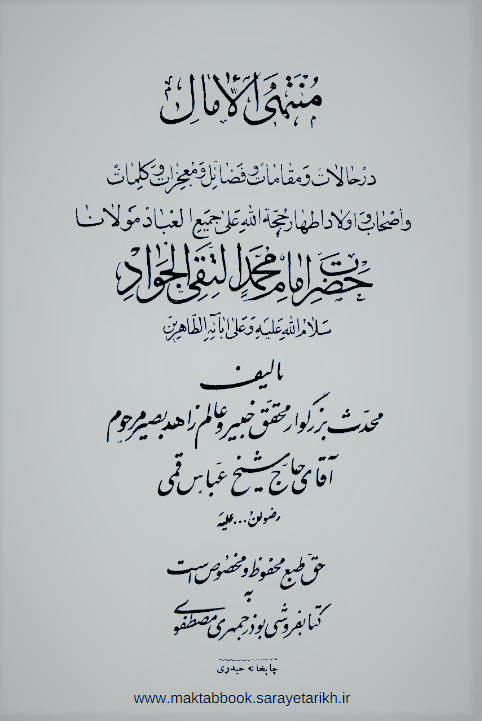 مُنْتَهَى الْآمٰالِ
در حالات و مقامات و فضائل و معجزات و کلمات
و اصحاب و اولاد اطهار حجة الله علی جمیع العباد مولانا
حضرت امام محمد التقی الجواد
سلام الله علیه و علی آبائه الطاهرین
تالیف
محدث بزرگوار محقق خبیر و عالم زاهد بصیر مرحوم
آقای حاج شیخ عباس قمی
رضوان ... علیه
حق طبع محفوظ و مخصوص است
به
کتابفروشی بوذرجمهری مصطفوی
چاپخانه حیدری
www.maktabbook.sarayetarikh.ir